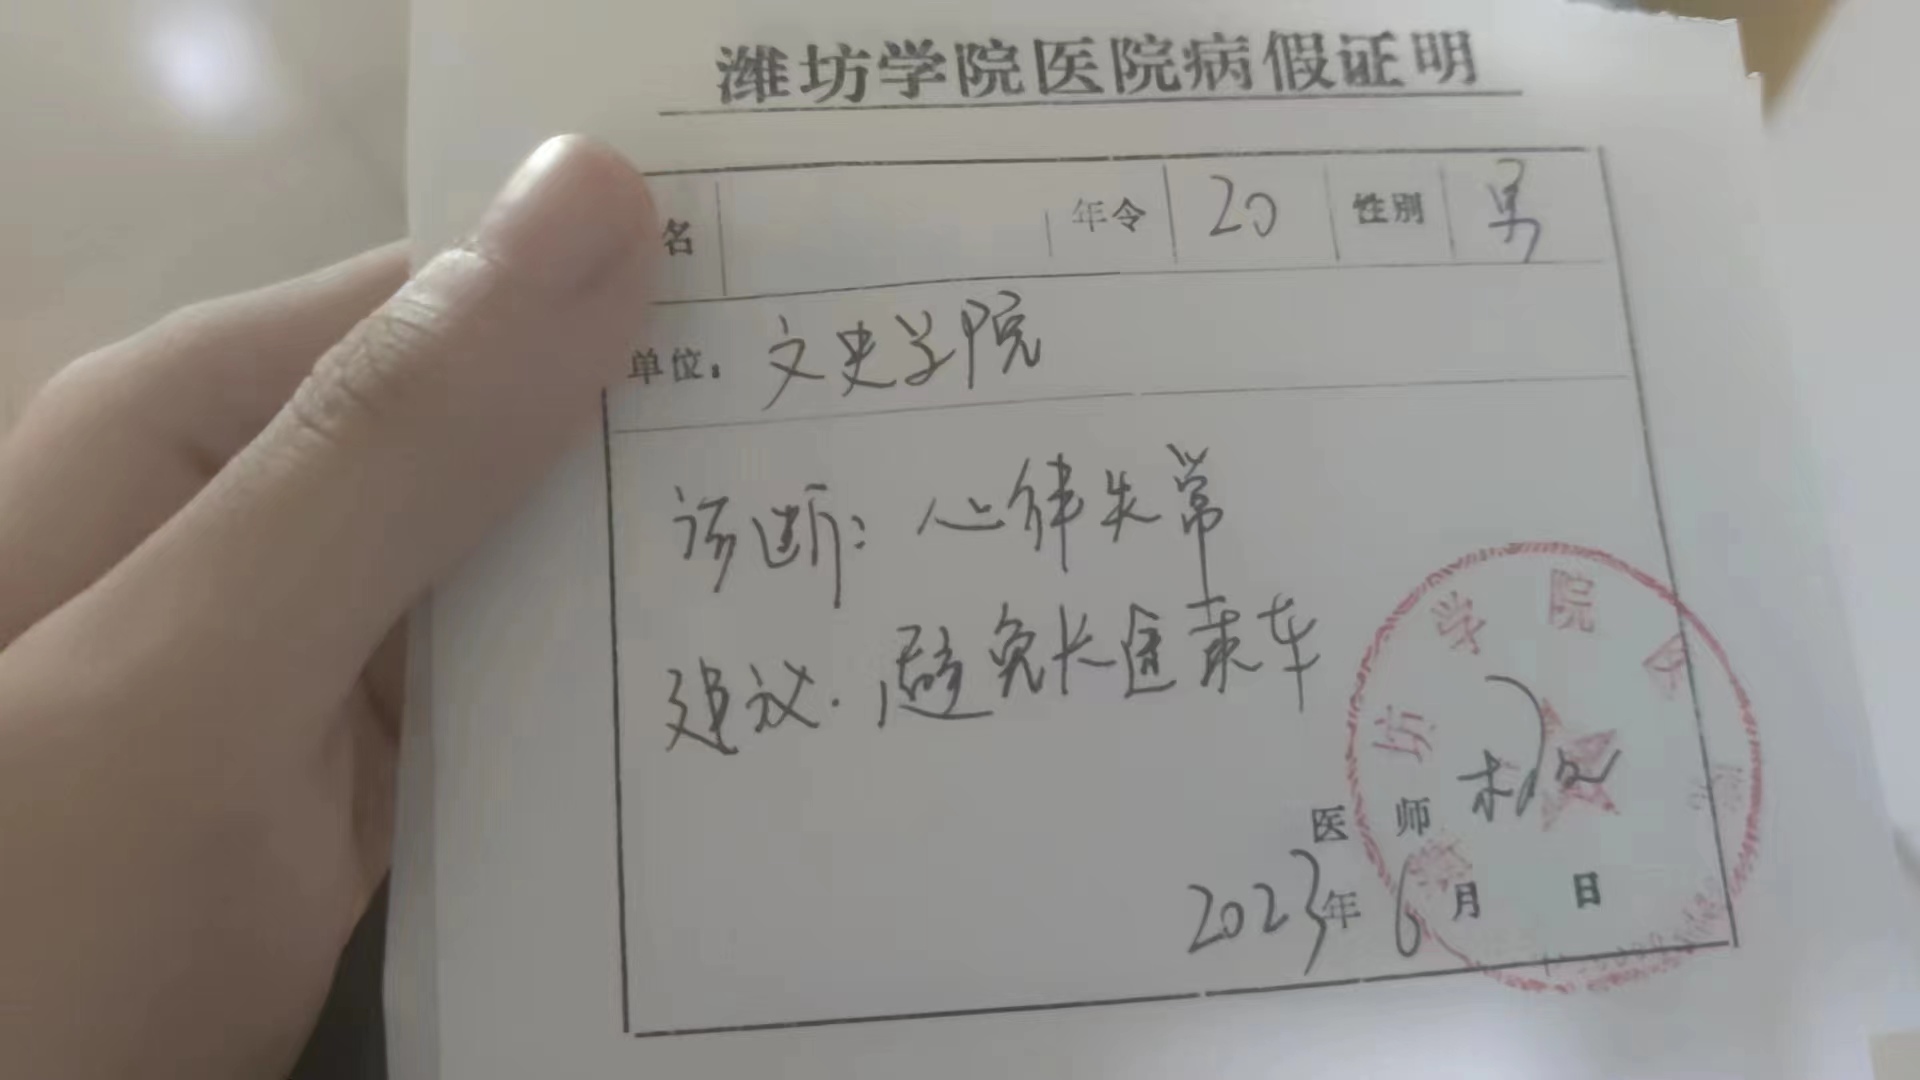 潍坊学院医院病假证明
名 年令 20 性别 男
单位: 文史学院
诊断: 心律失常
建议. 避免长途乘车
坊学院医
医师
2023年6月 日